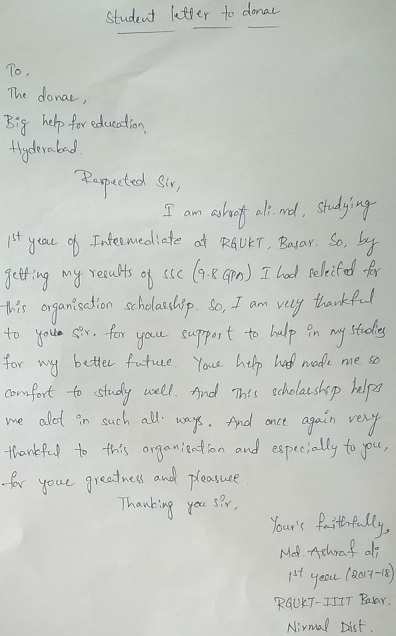 Student letter to donar
To,
The donar,
Big help for education,
Hyderabad.
Respected Sir,
I am ashraf ali.md, studying
1st year of Intermediate at RGUKT, Basar. So, by
getting my results of SSC (9.8 GPA) I had selected for
this organisation scholarship. So, I am very thankful
to your sir, for your support to help in my studies
for my better future. Your help had made me so
comfort to study well. And This scholarship helps
me alot in such all ways. And once again very
thankful to this organisation and especially to you,
for your greatness and pleasure.
Thanking you sir,
Your's faithfully,
Md. Ashraf ali
1st year (2017-18)
RGUKT-IIIT Basar.
Nirmal Dist.